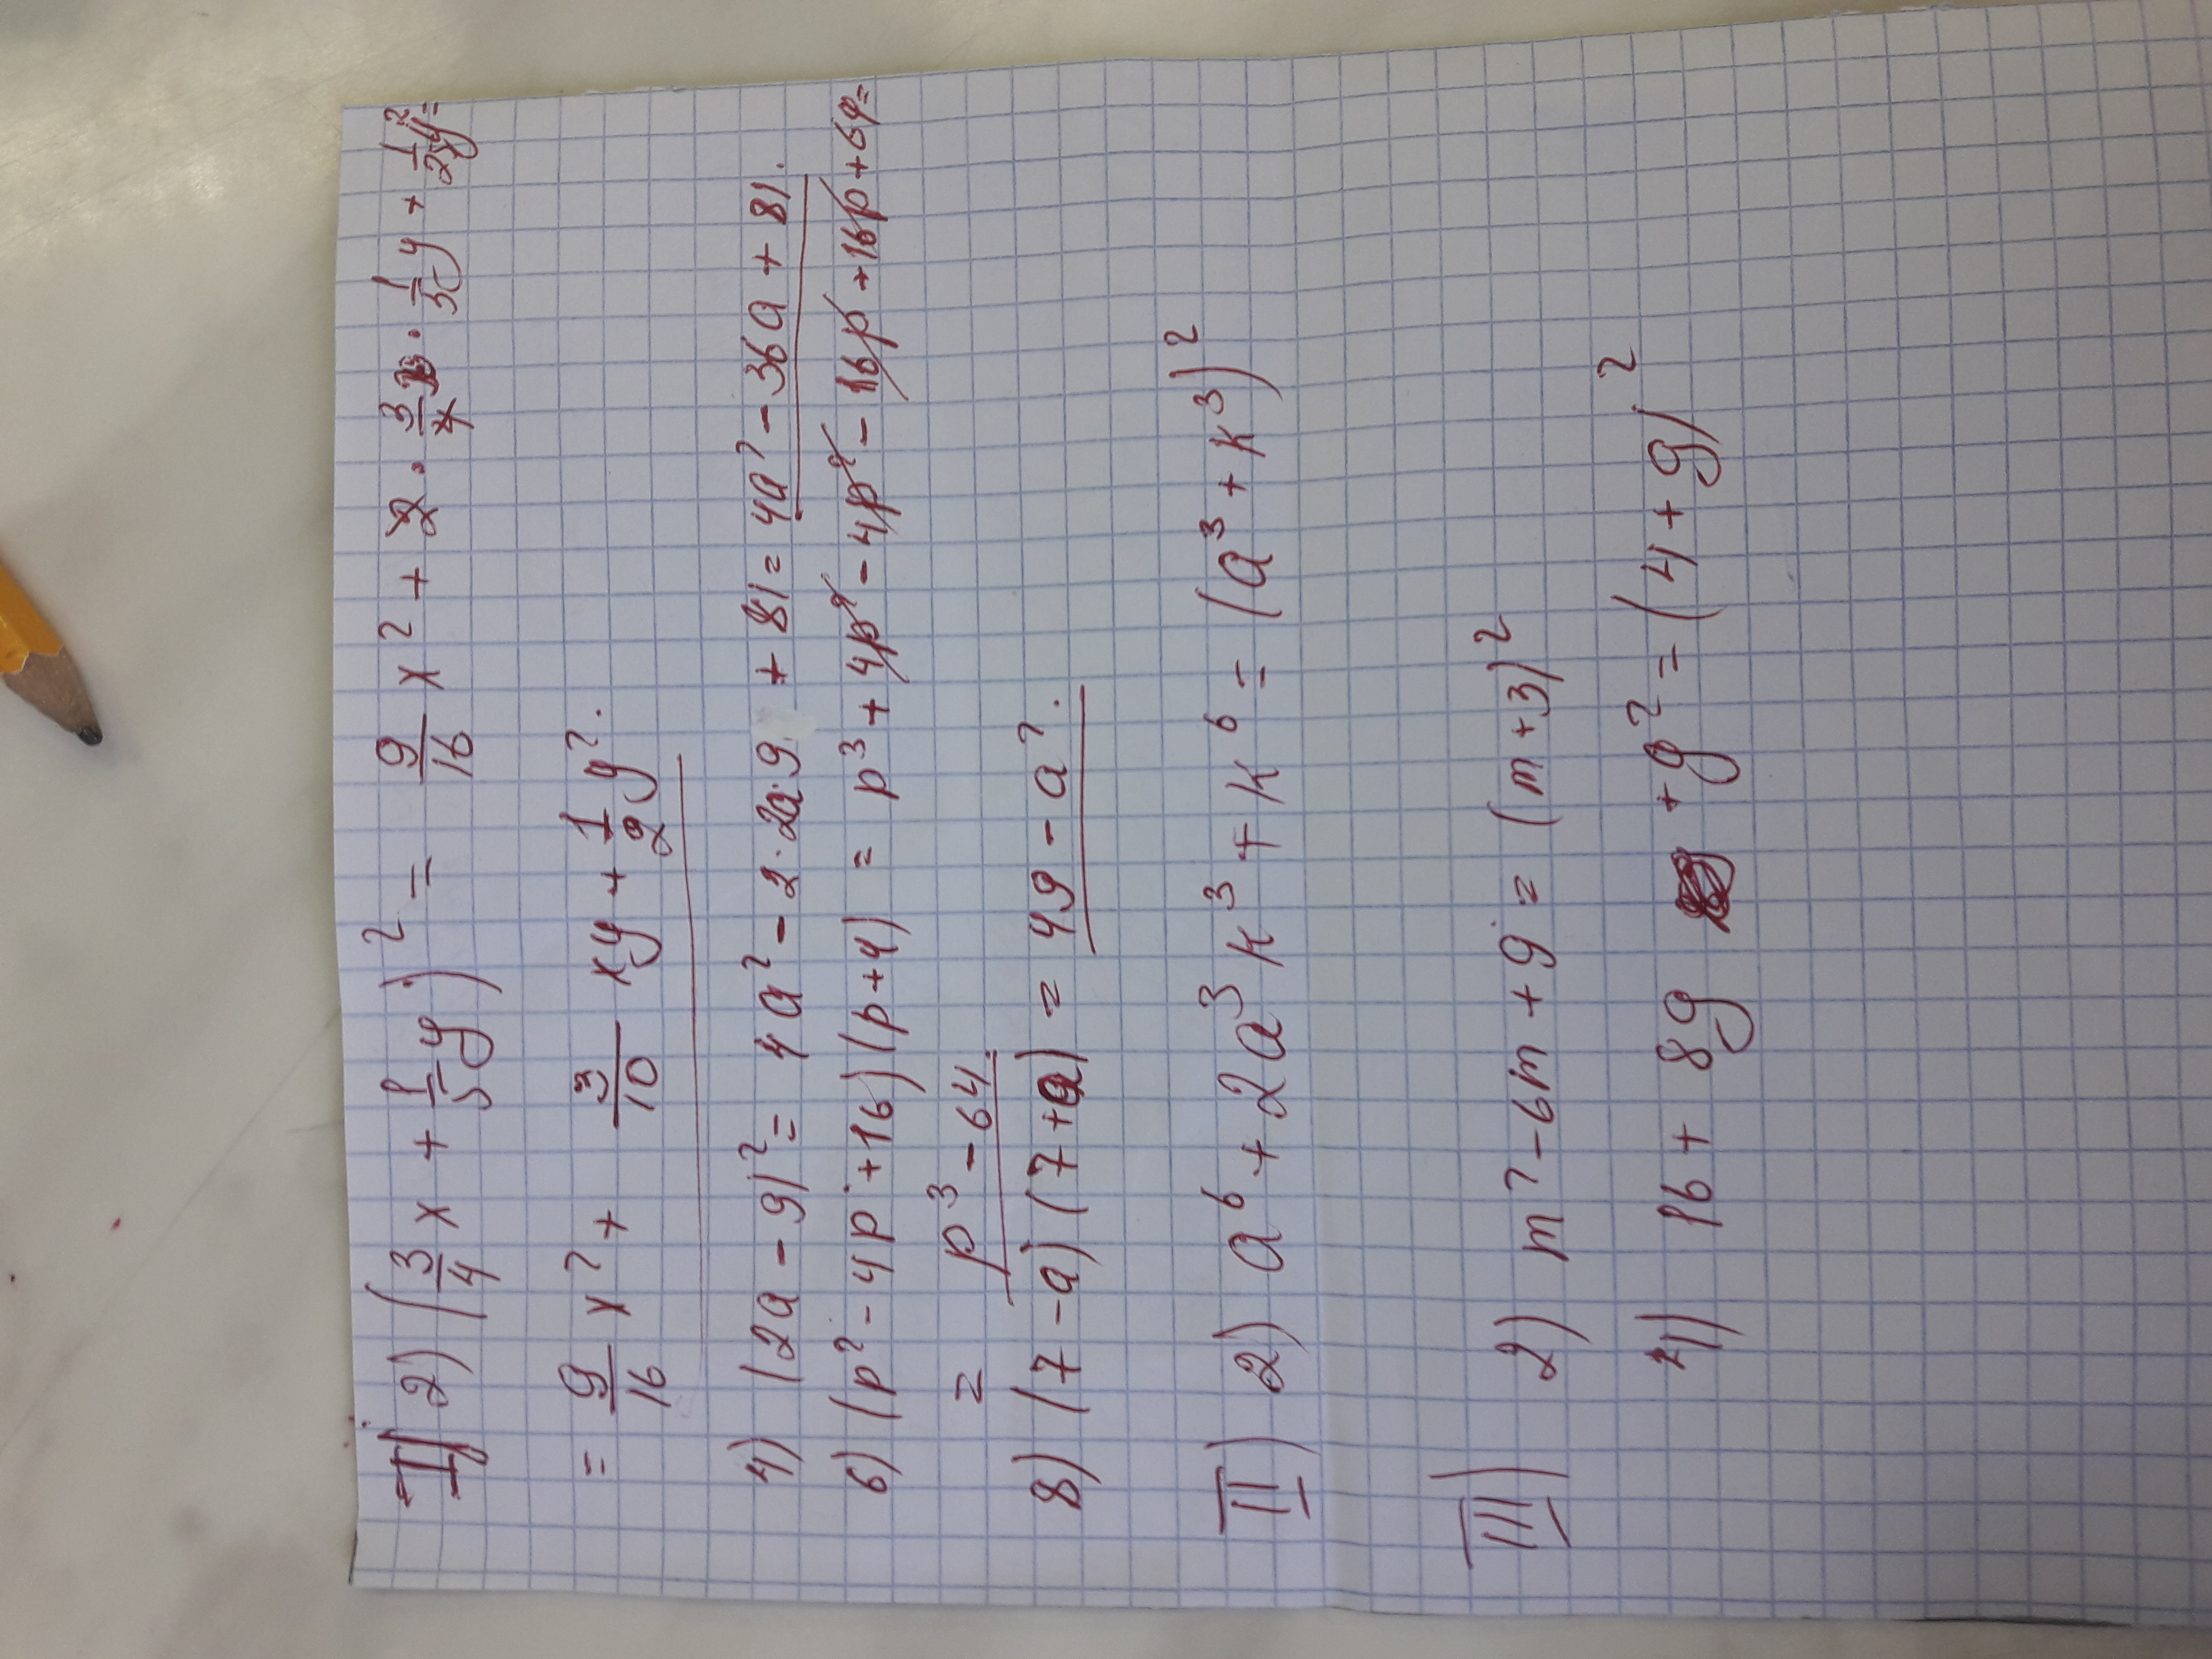 I) 2) (3/4 x + 1/5 y)² = 9/16 x² + 2 · 3/4 x · 1/5 y + 1/2 y² =
= 9/16 x² + 3/10 xy + 1/2 y².
4) (2a - 9)² = 4a² - 2 · 2a · 9 + 81 = 4a² - 36a + 81.
6) (p² - 4p + 16)(p + 4) = p³ + 4p² - 4p² - 16p + 16p + 64 =
= p³ - 64
8) (7 - a)(7 + a) = 49 - a².
II) 2) a⁶ + 2a³k³ + k⁶ = (a³ + k³)²
III) 2) m² - 6m + 9 = (m + 3)²
4) 16 + 8g + g² = (4 + g)²